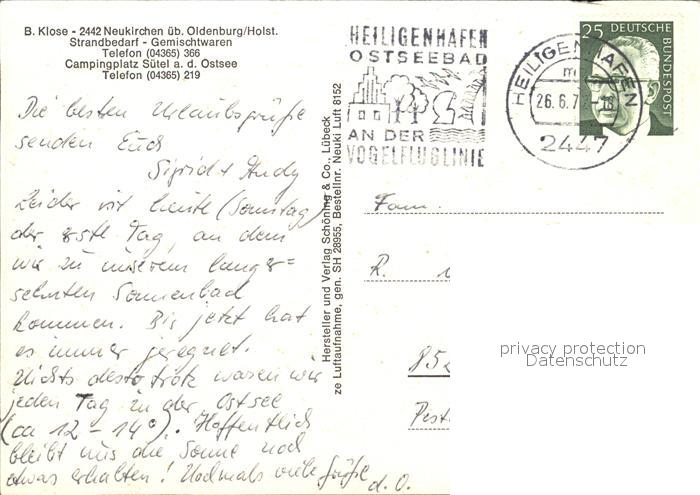 B. Klose - 2442 Neukirchen üb. Oldenburg/Holst.
Strandbedarf - Gemischtwaren
Telefon (04365) 366
Campingplatz Sütel a. d. Ostsee
Telefon (04365) 219
Die besten Urlaubsgrüße
senden Euch
Sigrid + Andy
Leider ist heute (Sonntag)
der erste Tag, an dem
wir zu unserem langer=
sehnten Sonnenbad
kommen. Bis jetzt hat
es immer geregnet.
Nichts desto trotz waren wir
jeden Tag in der Ostsee
(ca 12 - 14°). Hoffentlich
bleibt uns die Sonne noch
etwas erhalten! Nochmals viele Grüße
d. O.
Hersteller und Verlag Schöning & Co., Lübeck
ze Luftaufnahme, gen. SH 28955, Bestellnr. Neuki Luft 8152
HEILIGENHAFEN
OSTSEEBAD
AN DER
VOGELFLUGLINIE
HEILIGENHAFEN
m
26.6.7
2447
25 DEUTSCHE
BUNDESPOST
Fam.
R.
85
Post
privacy protection
Datenschutz